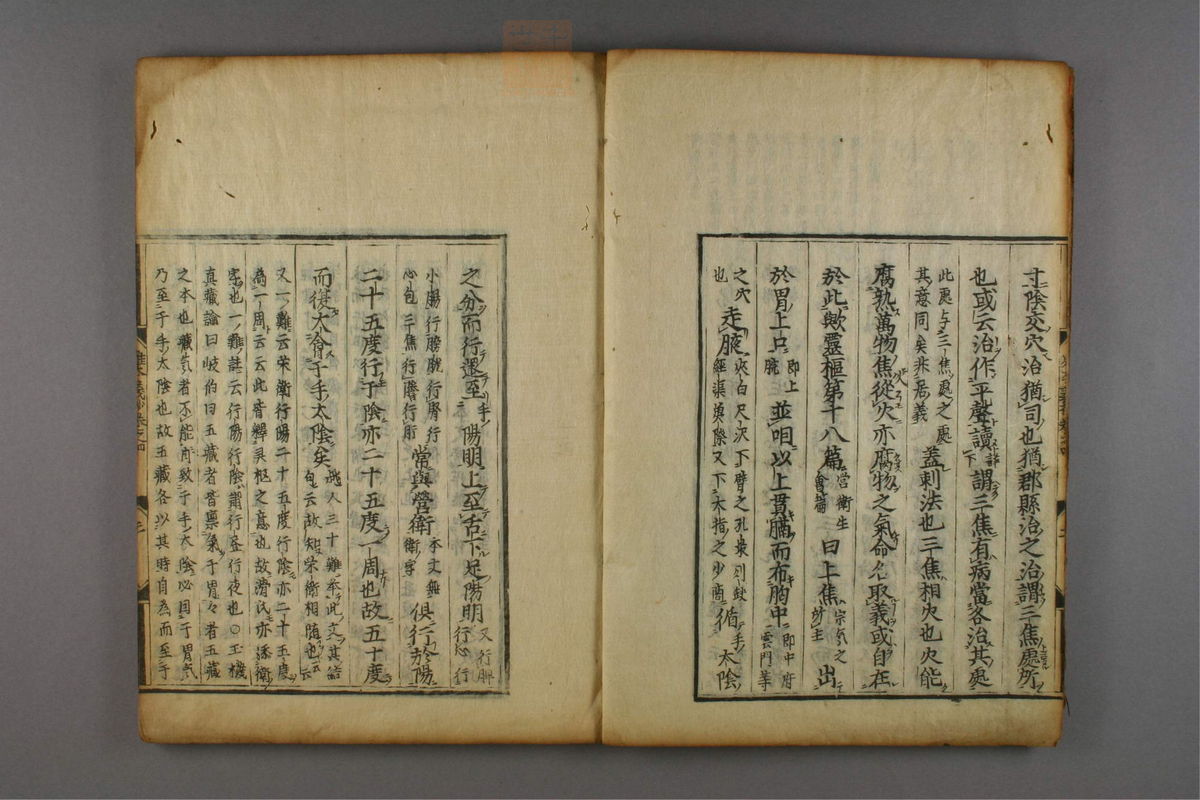 寸陰交穴治猶司也猶郡縣治之治謂三焦處所
也或云治作平聲讀謂三焦有病當各治其處
此處与三焦處之處
其意同矣非居義
蓋刺法也三焦相火也火能
腐熟萬物焦從火亦腐物之氣命名取義或自在
於此歟靈樞第十八篇
營衛生
會篇
曰上焦
宗氣之
出
於胃上口
即上
脘
並咽以上貫膈而布胸中
即中府
雲門等
之穴
也
走腋
夾白尺沢下臂之孔最列缺
經渠魚際又下大指之少商
循手太陰
之分而行還至手陽明上至舌下足陽明
又行脾
行心行
小腸行膀胱行腎行
心包三焦行膽行肝
常與營衛
本文無
衛字
俱行於陽
二十五度行于陰亦二十五度一周也故五十度
而復太會于手太陰矣
人三十難卒此文其結
包云故知栄衛相随也云云
又一難云栄衛行陽二十五度行陰亦二十五度
為一周云云此皆釋灵枢之意也故滑氏亦添衛
字也一難註云行陽行陰謂行昼行夜也○玉機
真蔵論曰岐伯曰五蔵者皆禀氣于胃々者五蔵
之本也蔵気者不能自致于手太陰必因于胃気
乃至于手太陰也故五蔵各以其時自為而至于